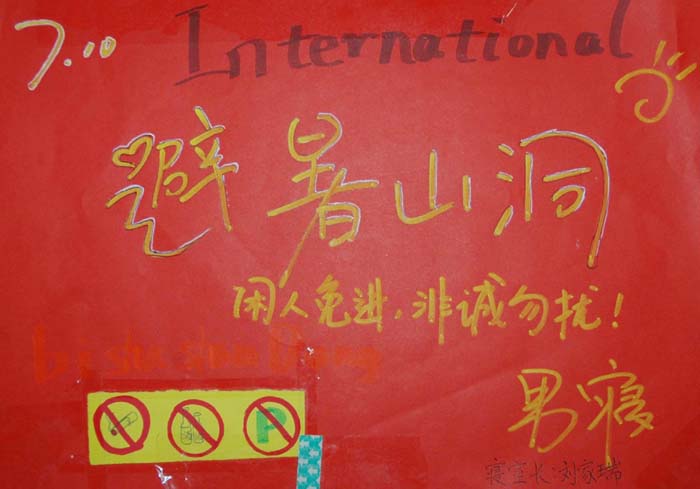 7.10
International
避暑山洞
闲人免进，非诚勿扰！
bi shu shan Dong
P
男寝
寝室长：刘家瑞